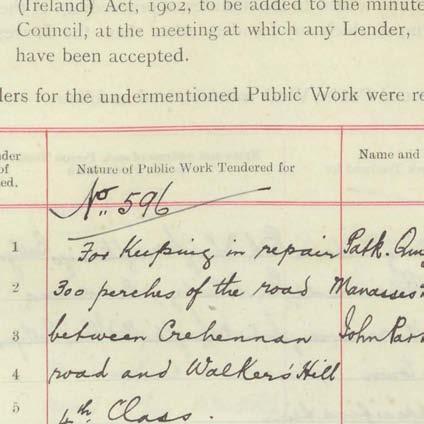 (Ireland) Act, 1902, to be added to the minute
Council, at the meeting at which any Lender,
have been accepted.
ders for the undermentioned Public Work were re
nder
of
ed.
Nature of Public Work Tendered for
Name and
No. 596
1 For keeping in repair Patk.
2 300 perches of the road Manasses
3 between Crehennan John
4 road and Walkers' Hill
5 4th Class.